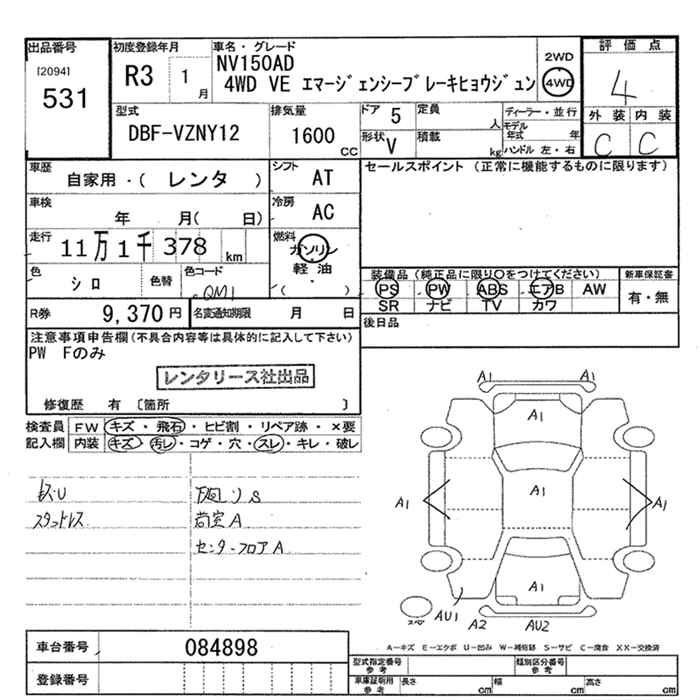 出品番号
[2094]
531
初度登録年月
R3 1月
車名・グレード
NV150AD
4WD VE エマージェンシーブレーキヒョウジュン
2WD
4WD
評価点
4
外装 内装
C C
型式
DBF-VZNY12
排気量
1600 CC
ドア 5
定員 人
形状 V
積載 kg
ディーラー・並行
モデル年式 年
ハンドル 左・右
車歴
自家用・( レンタ )
シフト AT
車検
年 月( 日)
冷房 AC
走行
11万1千378 km
燃料
ガソリン
軽油
( )
色
シロ
色替
色コード
QM1
R券 9,370円
名変通知期限 月 日
セールスポイント (正常に機能するものに限ります)
装備品(純正品に限り○をつけてください)
PS PW ABS エアB AW
SR ナビ TV カワ
新車保証書
有・無
後日品
注意事項申告欄(不具合内容等は具体的に記入して下さい)
PW Fのみ
レンタリース社出品
修復歴 有 〔箇所 〕
検査員記入欄
FW キズ・飛石・ヒビ割・リペア跡・×要
内装 キズ・汚レ・コゲ・穴・スレ・キレ・破レ
スタッドレス
下回りS
荷室A
センターフロアA
A1 A1
A1
A1 A1 A1
A1
AU1 A2 AU2
スペア
A-キズ E-エクボ U-凹み W-補修跡 S-サビ C-腐食 XX-交換済
車台番号 084898
登録番号
型式指定番号
参考
類別区分番号
参考
車庫証明用
参考
長さ cm 幅 cm 高さ cm